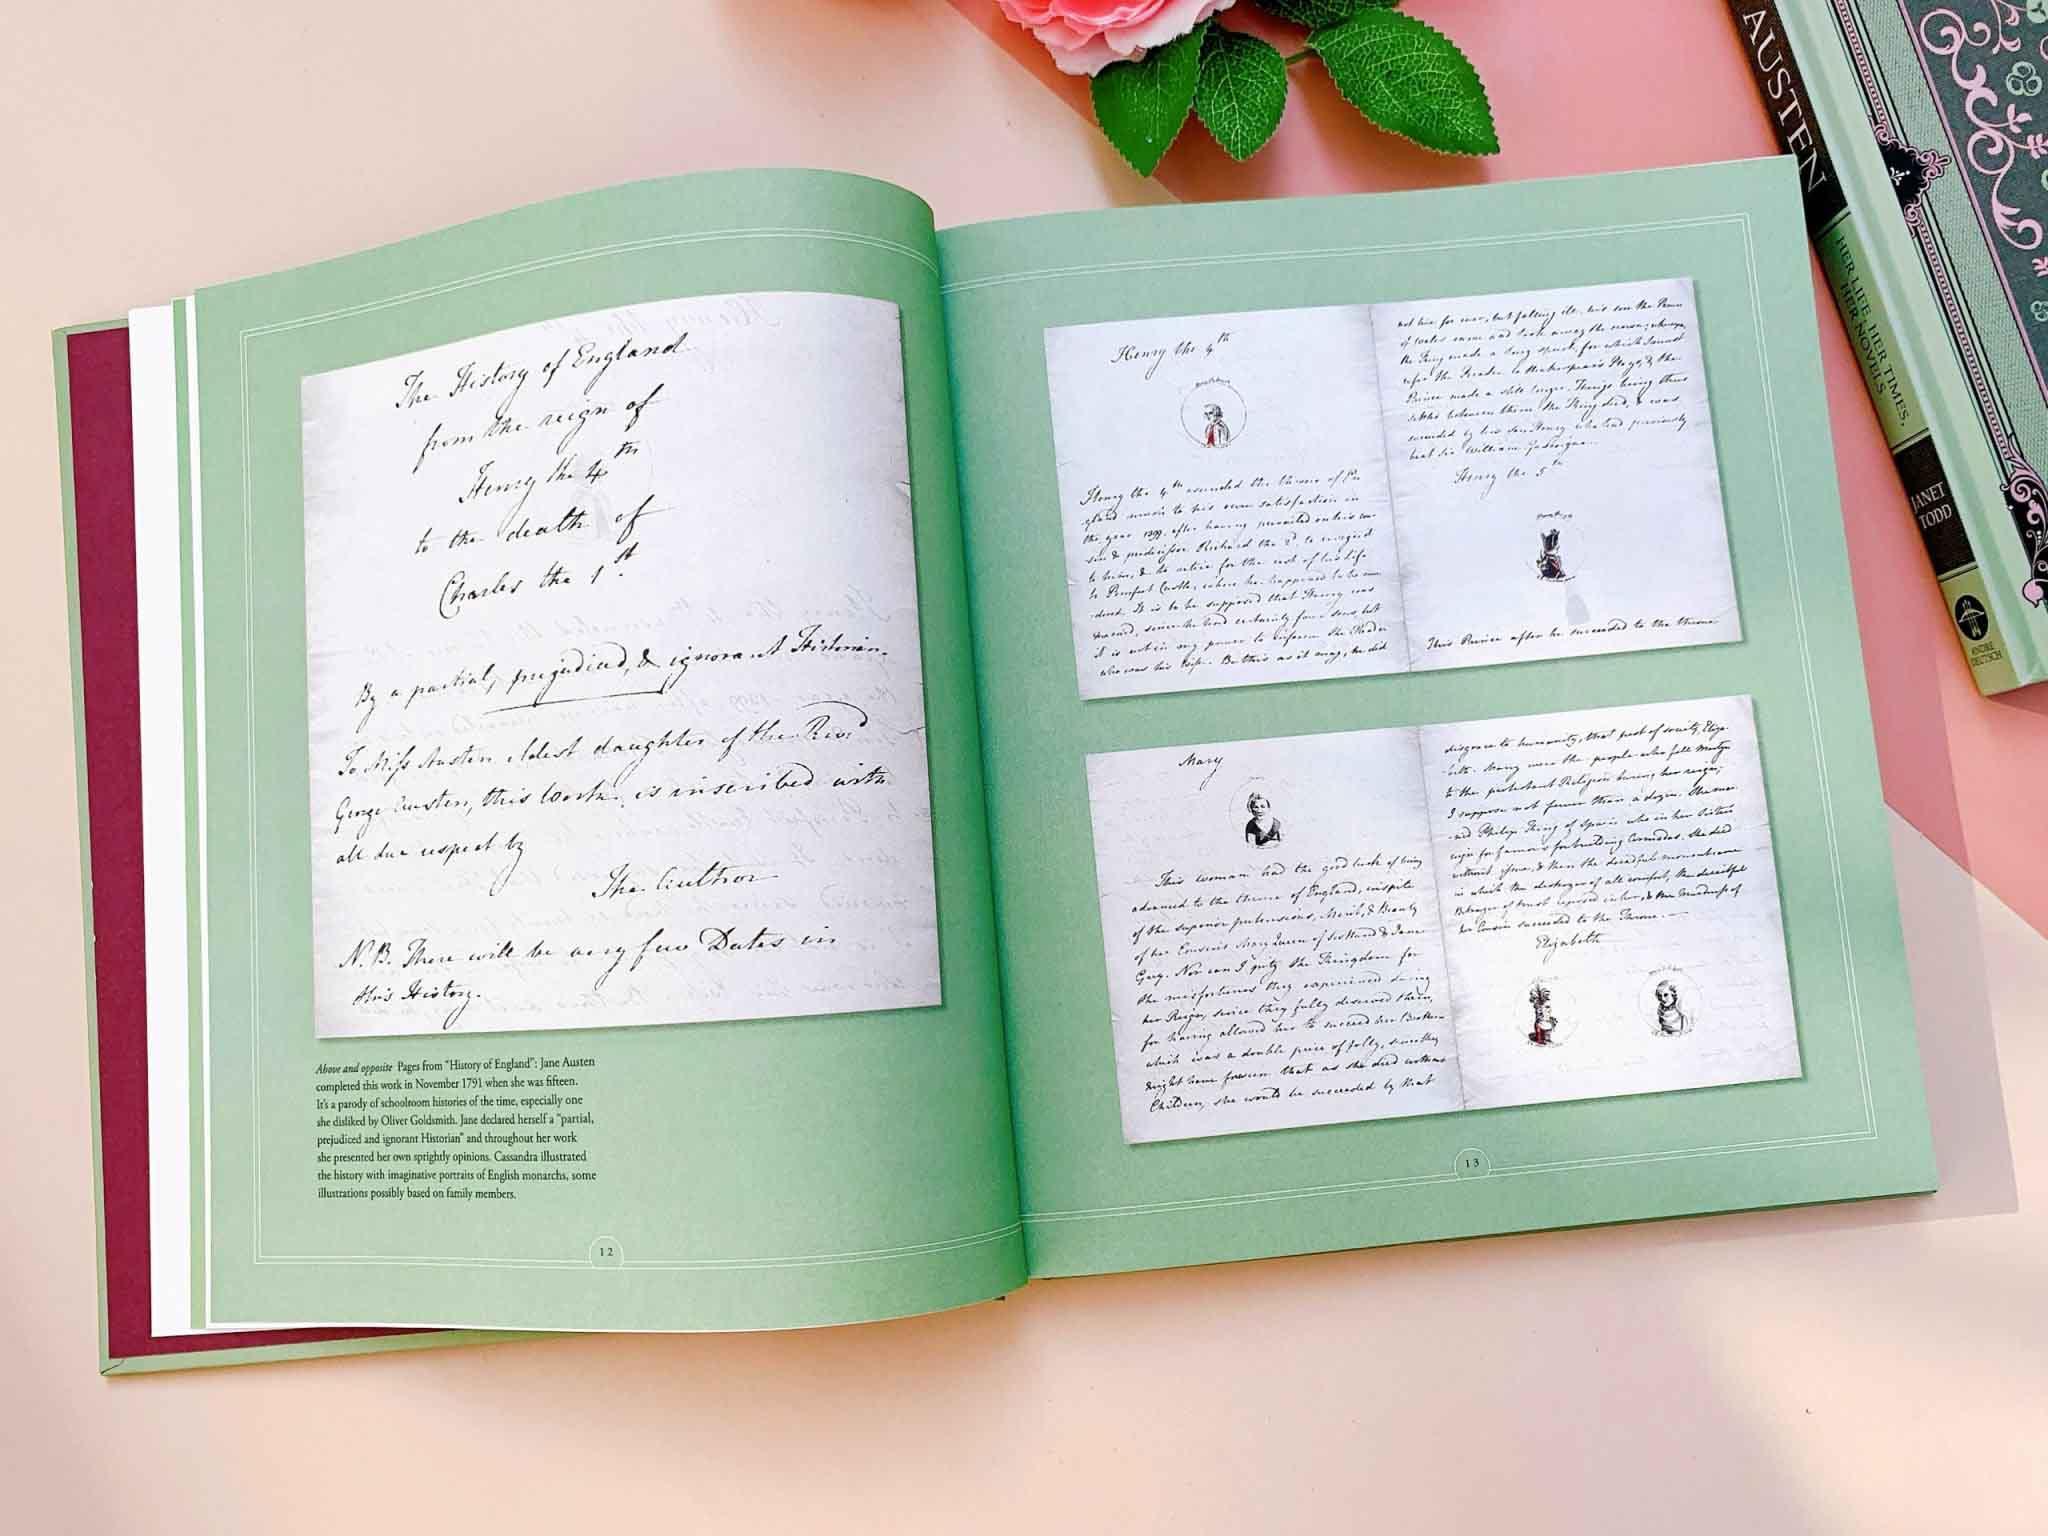 The History of England
from the reign of
Henry the 4th
to the death of
Charles the 1st
By a partial, prejudiced, & ignorant Historian.
To Miss Austen eldest daughter of the Revd
George Austen, this Work is inscribed with
all due respect by
The Author
N.B. There will be very few Dates in
this History.
Above and opposite Pages from "History of England": Jane Austen
completed this work in November 1791 when she was fifteen.
It's a parody of schoolroom histories of the time, especially one
she disliked by Oliver Goldsmith. Jane declared herself a "partial,
prejudiced and ignorant Historian" and throughout her work
she presented her own sprightly opinions. Cassandra illustrated
the history with imaginative portraits of English monarchs, some
illustrations possibly based on family members.
12
Henry the 4th
Henry the 4th ascended the throne of En
gland much to his own satisfaction in
the year 1399, after having prevailed on his cou
sin & predecessor Richard the 2d to resign it
to him, & to retire for the rest of his Life
to Pomfret Castle, where he happened to be mur
dered. It is to be supposed that Henry was
married, since he had certainly four sons, but
it is not in my power to inform the Reader
who was his Wife. Be this as it may, he did
not live for ever, but falling ill, his son the Prince
of Wales came and took away the crown; whereupon
the King made a long speech, for which I must
refer the Reader to Shakespear's Plays, & the
Prince made a still longer. Things being thus
settled between them the King died, & was
succeeded by his son Henry who had previously
beat Sir William Gascoigne.
Henry the 5th
This Prince after he succeeded to the throne
Mary
This woman had the good luck of being
advanced to the throne of England, inspite
of the superior pretensions, Merit, & Beauty
of her Cousins Mary Queen of Scotland & Jane
Grey. Nor can I pity the Kingdom for
the misfortunes they experienced during
her Reign, since they fully deserved them,
for having allowed her to succeed her Brother
which was a double peice of folly, since they
might have foreseen that as she died without
Children, she would be succeeded by that
disgrace to humanity, that pest of society, Eliza
-beth. Many were the people who fell Martyrs
to the protestant Religion during her reign;
I suppose not fewer than a dozen. She mar
-ried Philip King of Spain who in her Sister's
reign was famous for building Armadas. She died
without issue, & then the dreadful moment came
in which the destroyer of all comfort, the deceitful
Betrayer of trust reposed in her, & the Murderess of
her Cousin succeeded to the Throne.
Elizabeth
13
AUSTEN
HER LIFE, HER TIMES,
HER NOVELS
JANET
TODD
ANDRE
DEUTSCH